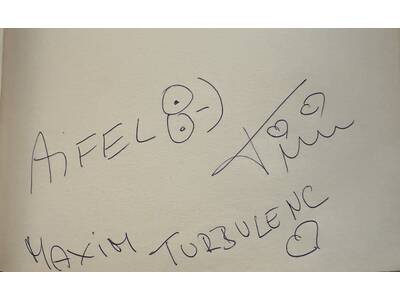 AiFEL
MAXIM TURBULENC